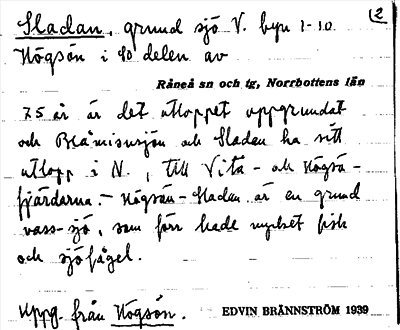 (2
Sladan, grund sjö V. byn 1-10
Högsön i SO delen av
Råneå sn och tg, Norrbottens län
75 år är det utloppet uppgrundat
och Blåmisusjön och Sladan ha sitt
utlopp i N., till Vitå- och Högsö-
fjärdarna. - Högsön-Sladan är en grund
vass-sjö, som förr hade mycket fisk
och sjöfågel.
Uppg. från Högsön.
EDVIN BRÄNNSTRÖM 1939